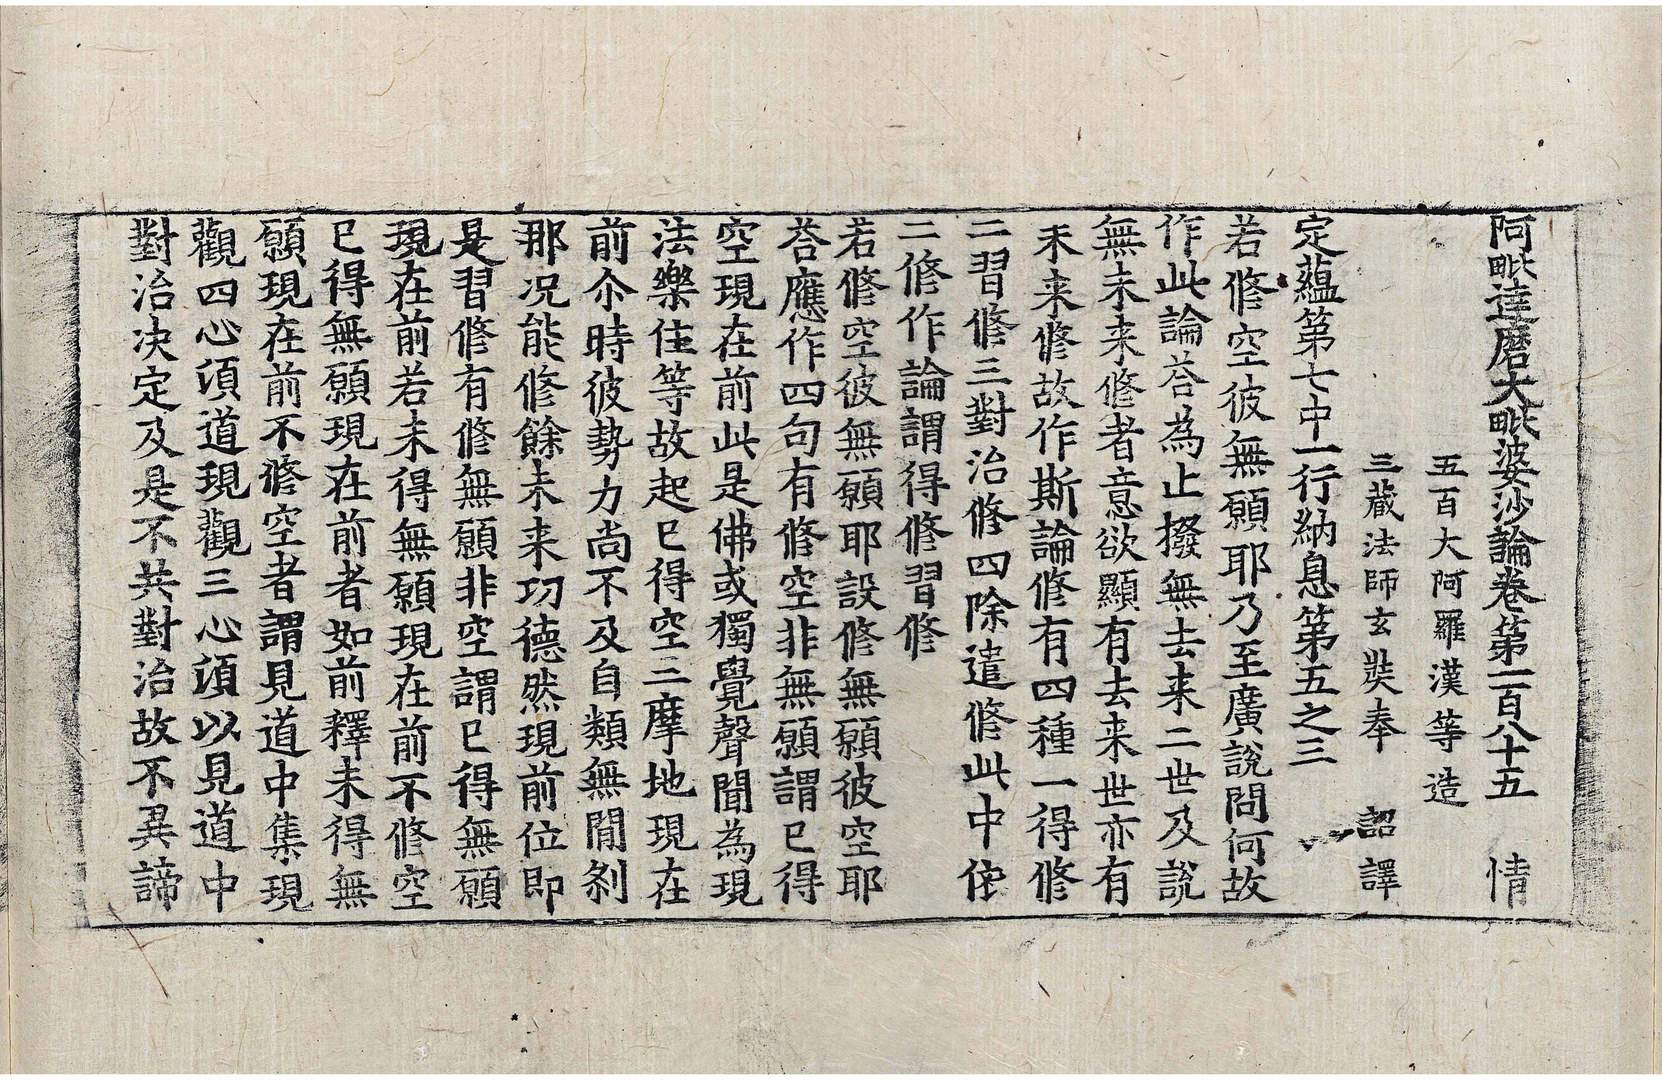 阿毗達磨大毗婆沙論卷第一百八十五　情
五百大阿羅漢等造
三藏法師玄奘奉　詔譯
定蘊第七中一行納息第五之三
若修空彼無願耶乃至廣說問何故
作此論荅為止撥無去来二世及說
無未来修者意欲顯有去来世亦有
未来修故作斯論修有四種一得修
二習修三對治修四除遣修此中依
二修作論謂得修習修
若修空彼無願耶設修無願彼空耶
荅應作四句有修空非無願謂已得
空現在前此是佛或獨覺聲聞為現
法樂住等故起已得空三摩地現在
前尒時彼勢力尚不及自類無間剎
那況能修餘未来功德然現前位即
是習修有修無願非空謂已得無願
現在前若未得無願現在前不修空
已得無願現在前者如前釋未得無
願現在前不修空者謂見道中集現
觀四心湏道現觀三心湏以見道中
對治決定及是不共對治故不異諦